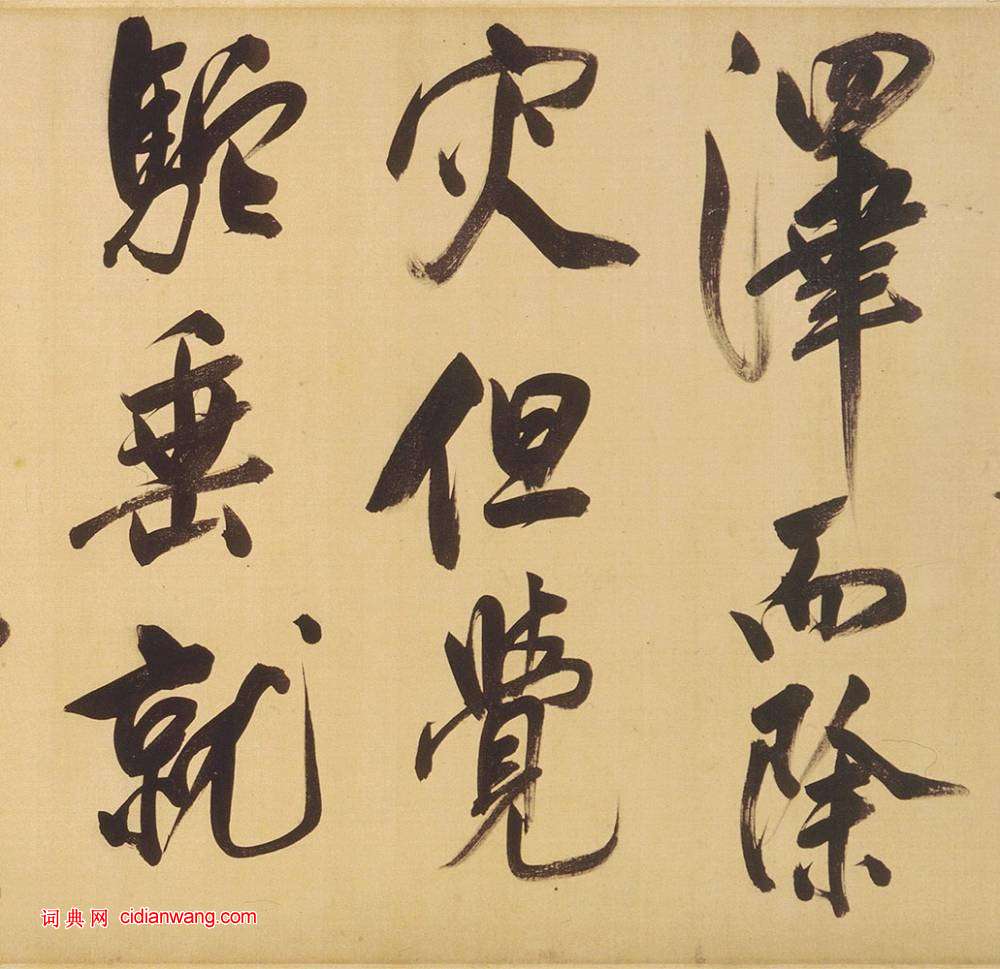 澤而除
灾但覺
駝垂就
词典网 cidianwang.com